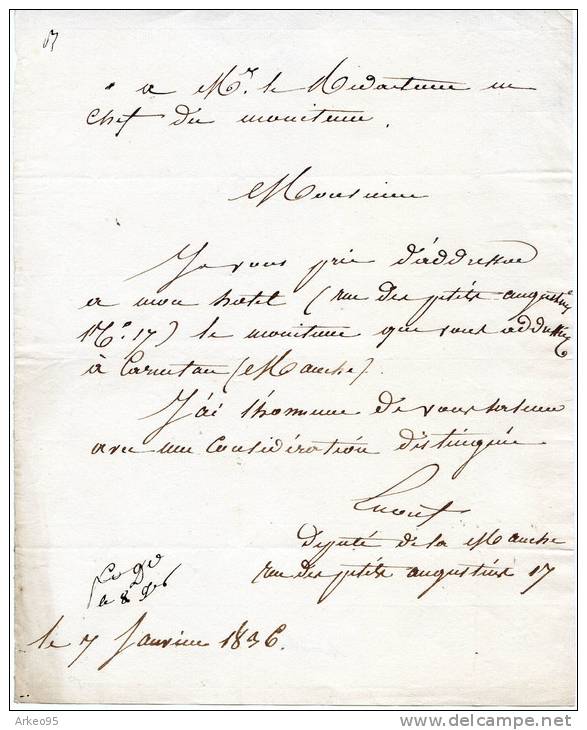 a Mr. le Rédacteur en
chef du moniteur.
Monsieur
Je vous prie d'addresser
a mon hotel (rue des petits augustins
No. 17) le moniteur que vous addressez
à Carentan (Manche).
J'ai l'honneur de vous saluer
avec une considération distinguée
Enouf
député de la Manche
rue des petits augustins 17
le 8
le 7 Janvier 1836.
Arkeo95
www.delcampe.net